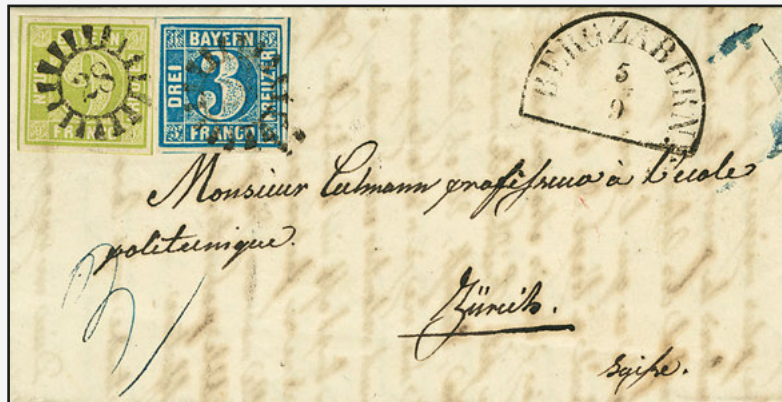 NEUN
BAYERN
9
FRANCO
28
BAYERN
DREI
3
KREUZER
FRANCO
BERGZABERN
5
9
Monsieur Culmann professeur à l'ecole
politecnique.
3
Zürich.